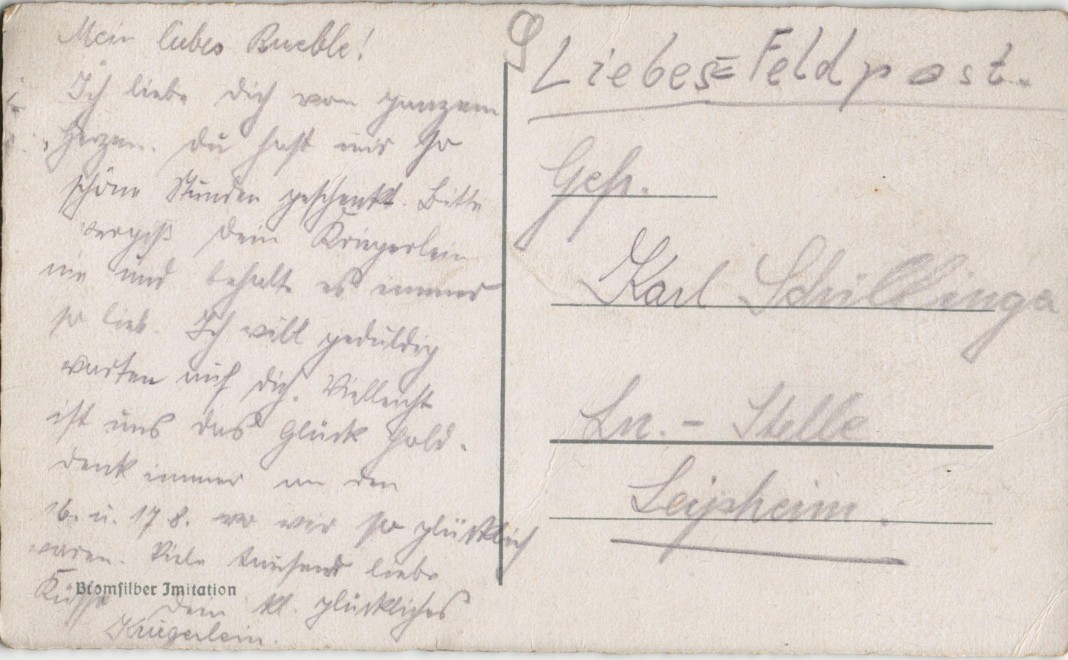 Mein liebes Bueble!
Ich liebe Dich vom ganzem
Herzen. Du hast mir so
schöne Stunden geschenkt. Bitte
vergiß Dein Kriegerlein
nie und behalte es immer
so lieb. Ich will geduldig
warten auf Dich. Vielleicht
ist uns das Glück hold.
Denk immer an den
16. u. 17.8. wo wir so glücklich
waren. Viele tausend liebe
Küsse Dein kl. glückliches
Krügerlein.
Bromsilber Imitation
Liebes=Feldpost.
Gefr.
Karl
Ln.-Stelle
Leipheim.